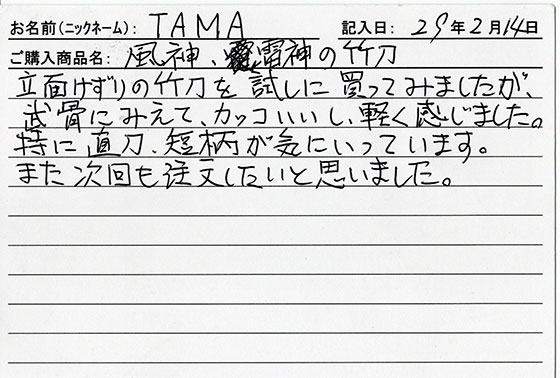 お名前(ニックネーム): TAMA 記入日: 29年2月14日
ご購入商品名: 風神、雷神の竹刀
立面けずりの竹刀を試しに買ってみましたが、
武骨にみえて、カッコいいし、軽く感じました。
特に直刀、短柄が気にいっています。
また次回も注文したいと思いました。